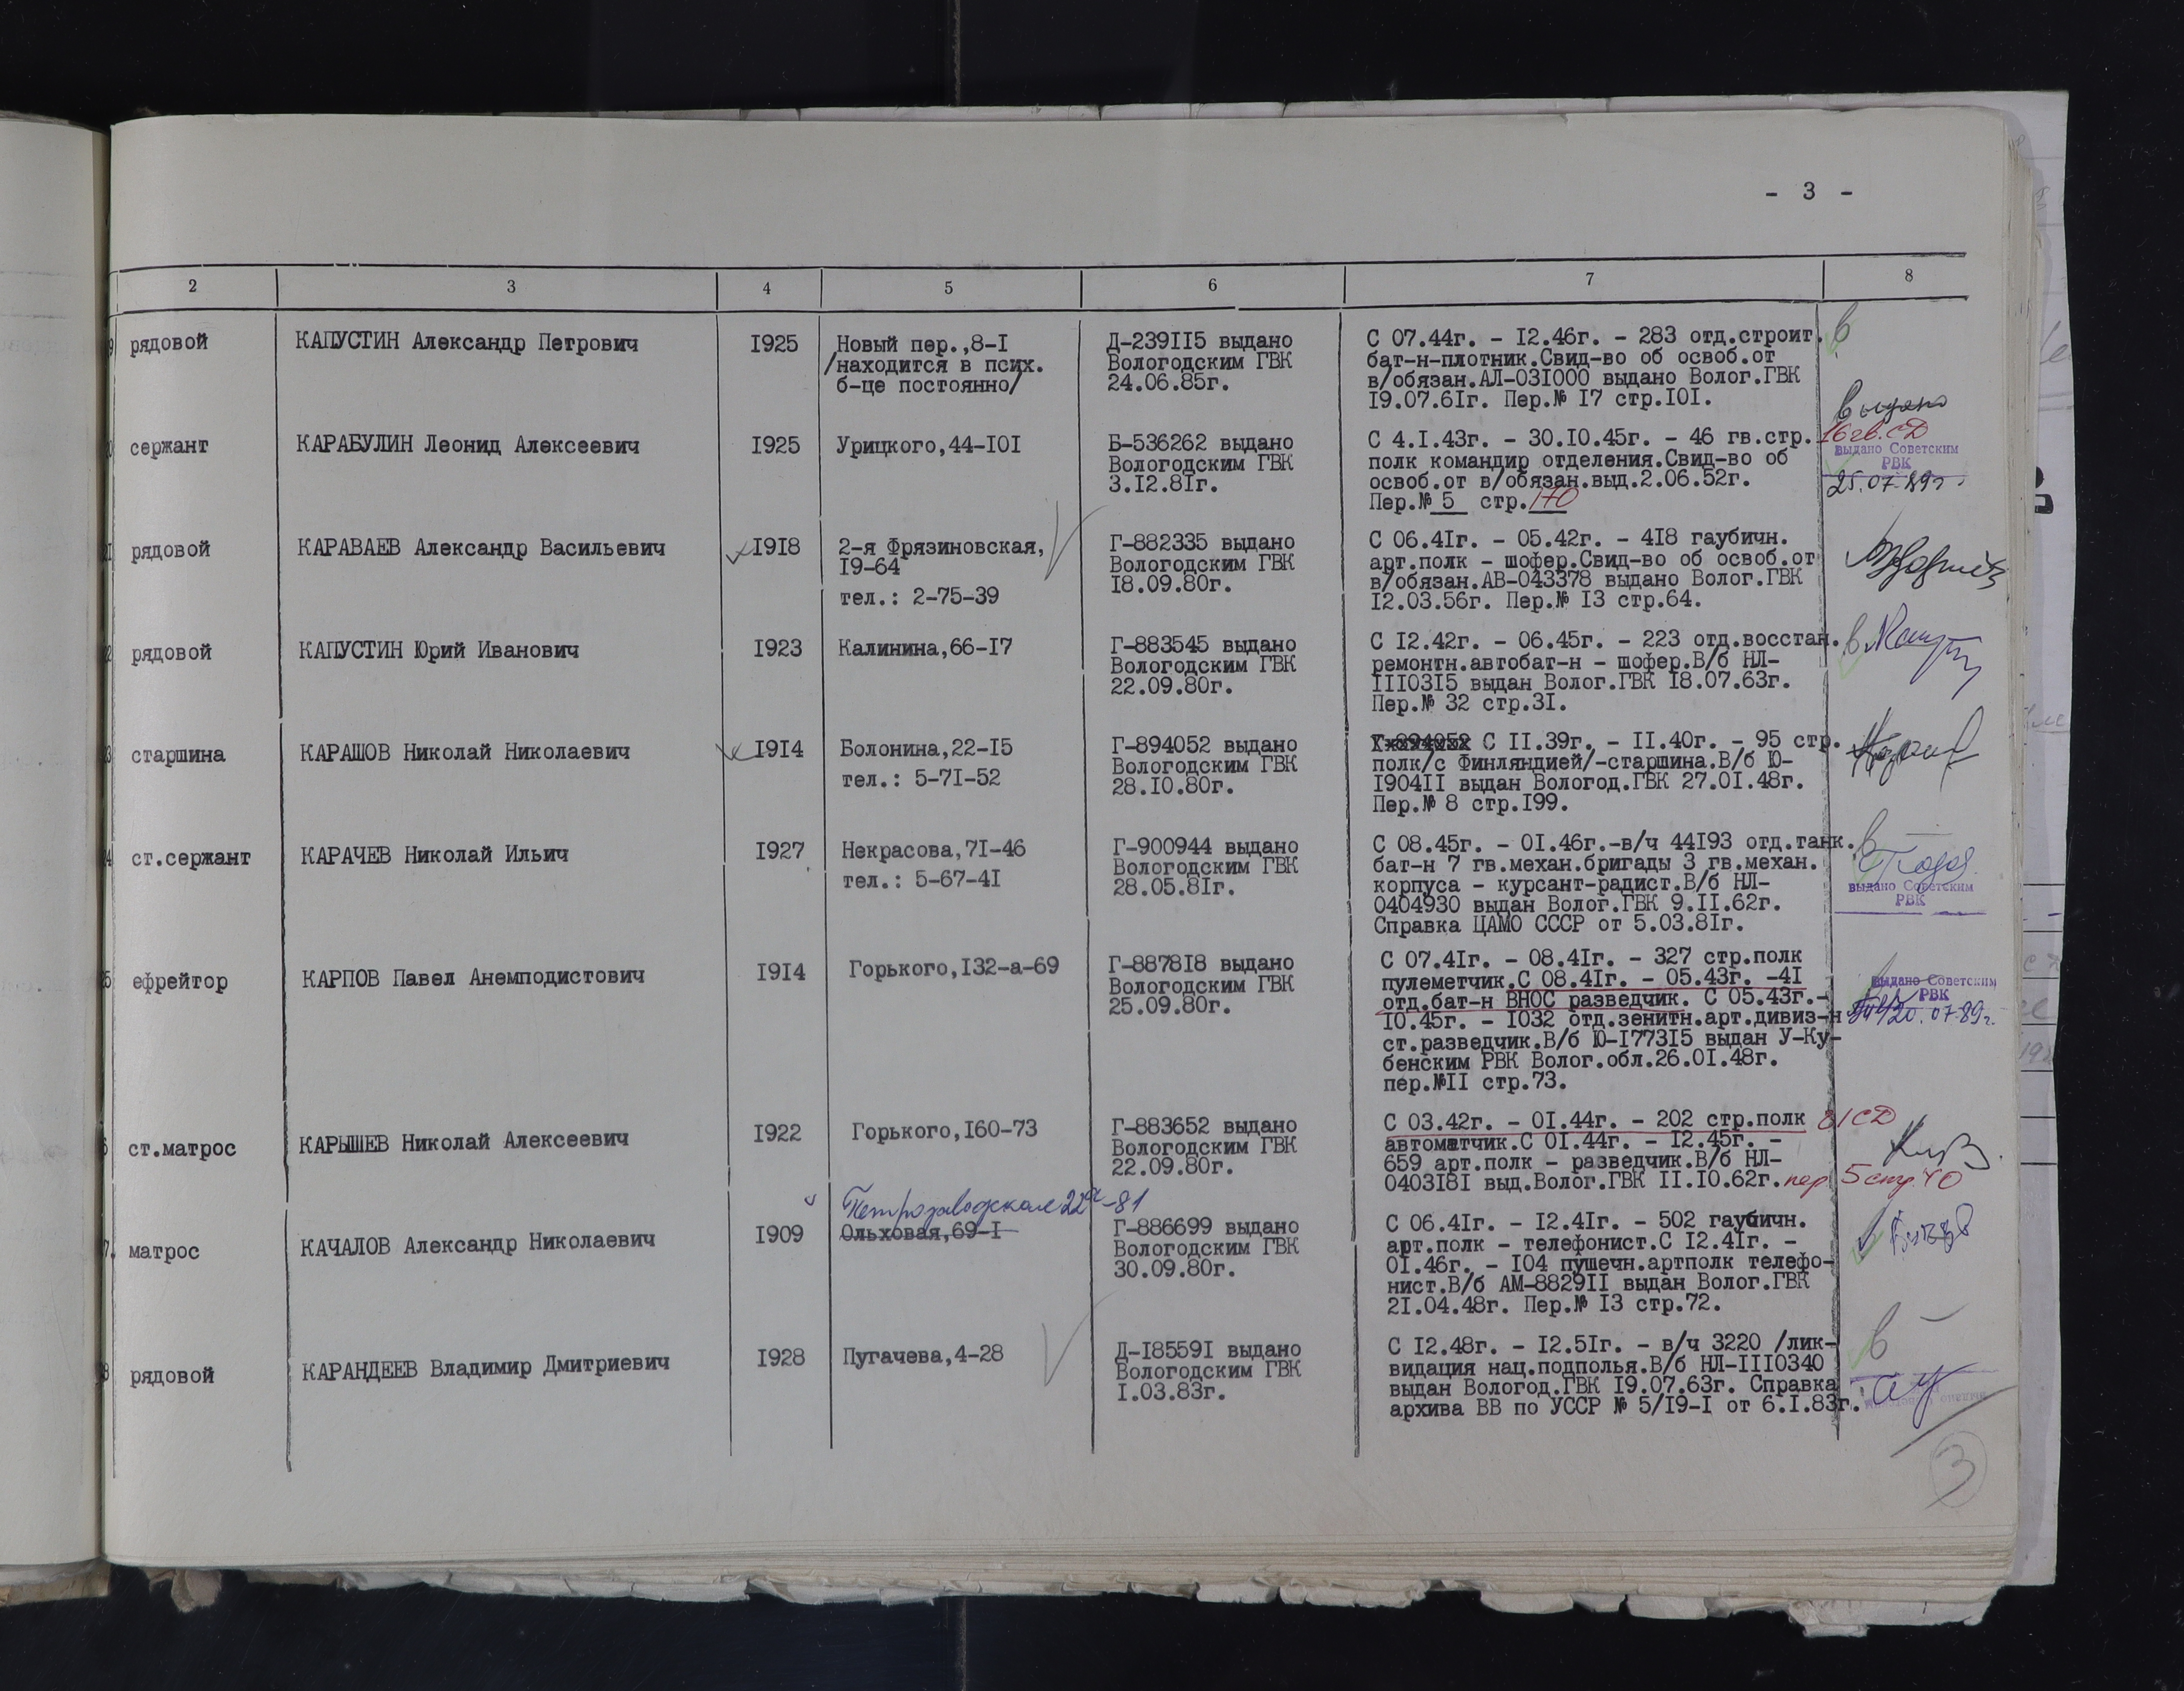 - 3 -
2 3 4 5 6 7 8
рядовой КАПУСТИН Александр Петрович I925 Новый пер.,8-I Д-239II5 выдано С 07.44г. - I2.46г. - 283 отд.строит. в
/находится в псих. Вологодским ГВК бат-н-плотник.Свид-во об освоб.от
б-це постоянно/ 24.06.85г. в/обязан.АЛ-03I000 выдано Волог.ГВК
I9.07.6Iг. Пер.№ I7 стр.I0I.
выдано
сержант КАРАБУЛИН Леонид Алексеевич I925 Урицкого,44-I0I Б-536262 выдано С 4.I.43г. - 30.I0.45г. - 46 гв.стр. 16 гв.СД
Вологодским ГВК полк командир отделения.Свид-во об выдано Советским
3.I2.8Iг. освоб.от в/обязан.выд.2.06.52г. РВК
Пер.№ 5 стр.170 25.07.89г.
рядовой КАРАВАЕВ Александр Васильевич I9I8 2-я Фрязиновская, Г-882335 выдано С 06.4Iг. - 05.42г. - 4I8 гаубичн.
I9-64 Вологодским ГВК арт.полк - шофер.Свид-во об освоб.от
I8.09.80г. в/обязан.АВ-043378 выдано Волог.ГВК
тел.: 2-75-39 I2.03.56г. Пер.№ I3 стр.64.
рядовой КАПУСТИН Юрий Иванович I923 Калинина,66-I7 Г-883545 выдано С I2.42г. - 06.45г. - 223 отд.восстан. в
Вологодским ГВК ремонтн.автобат-н - шофер.В/б НЛ-
22.09.80г. III03I5 выдан Волог.ГВК I8.07.63г.
Пер.№ 32 стр.3I.
старшина КАРАШОВ Николай Николаевич I9I4 Болонина,22-I5 Г-894052 выдано С II.39г. - II.40г. - 95 стр.
тел.: 5-7I-52 Вологодским ГВК полк/с Финляндией/-старшина.В/б Ю-
28.I0.80г. I904II выдан Вологод.ГВК 27.0I.48г.
Пер.№ 8 стр.I99.
ст.сержант КАРАЧЕВ Николай Ильич I927 Некрасова,7I-46 Г-900944 выдано С 08.45г. - 0I.46г.-в/ч 44I93 отд.танк. в
тел.: 5-67-4I Вологодским ГВК бат-н 7 гв.механ.бригады 3 гв.механ.
28.05.8Iг. корпуса - курсант-радист.В/б НЛ- выдано Советским
0404930 выдан Волог.ГВК 9.II.62г. РВК
Справка ЦАМО СССР от 5.03.8Iг.
ефрейтор КАРПОВ Павел Анемподистович I9I4 Горького,I32-а-69 Г-8878I8 выдано С 07.4Iг. - 08.4Iг. - 327 стр.полк
Вологодским ГВК пулеметчик.С 08.4Iг. - 05.43г. -4I выдано Советским
25.09.80г. отд.бат-н ВНОС разведчик. С 05.43г.- РВК
I0.45г. - I032 отд.зенитн.арт.дивиз-н 20.07.89г.
ст.разведчик.В/б Ю-I773I5 выдан У-Ку-
бенским РВК Волог.обл.26.0I.48г.
пер.№II стр.73.
ст.матрос КАРЫШЕВ Николай Алексеевич I922 Горького,I60-73 Г-883652 выдано С 03.42г. - 0I.44г. - 202 стр.полк 81СД
Вологодским ГВК автоматчик.С 0I.44г. - I2.45г. -
22.09.80г. 659 арт.полк - разведчик.В/б НЛ-
0403I8I выд.Волог.ГВК II.I0.62г. пер 5 стр.40
Петрозаводская 22а-81
матрос КАЧАЛОВ Александр Николаевич I909 Ольховая,69-I Г-886699 выдано С 06.4Iг. - I2.4Iг. - 502 гаубичн.
Вологодским ГВК арт.полк - телефонист.С I2.4Iг. -
30.09.80г. 0I.46г. - I04 пушечн.артполк телефо-
нист.В/б АМ-8829II выдан Волог.ГВК
2I.04.48г. Пер.№ I3 стр.72.
рядовой КАРАНДЕЕВ Владимир Дмитриевич I928 Пугачева,4-28 Д-I8559I выдано С I2.48г. - I2.5Iг. - в/ч 3220 /лик- в
Вологодским ГВК видация нац.подполья.В/б НЛ-III0340
I.03.83г. выдан Вологод.ГВК I9.07.63г. Справка
архива ВВ по УССР № 5/I9-I от 6.I.83г.
3